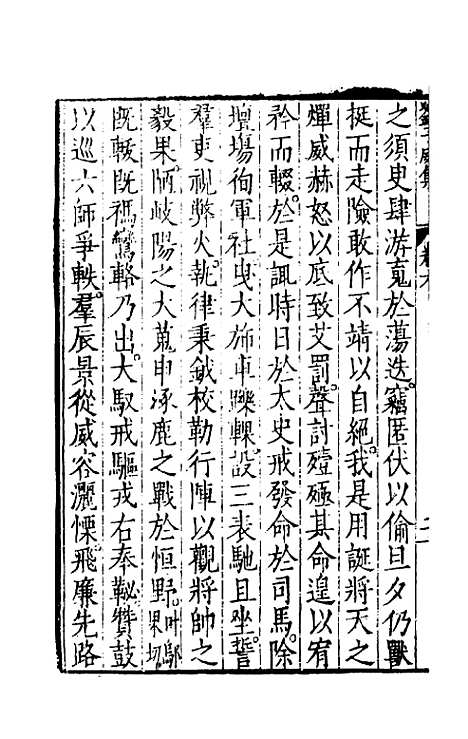 之須臾肆游䰟於蕩迭竊匿伏以偷旦夕仍獸
挺而走險敢作不靖以自絕我是用誕將天之
燀威赫怒以底致艾罰聲討殪殛其命遑以宥
矜而輟於是諏時日於太史戒發命於司馬除
壇場徇軍社曳大斾車躒輠設三表馳且坐誓
羣吏視弊火執律秉鉞校勒行陣以觀將帥之
毅果陋岐陽之大蒐申涿鹿之戰於恒野
既載既禡鸞輅乃出大馭戒驅戎右奉鞑贊鼓
以巡六師爭軼羣辰景從威容灑慄飛廉先路